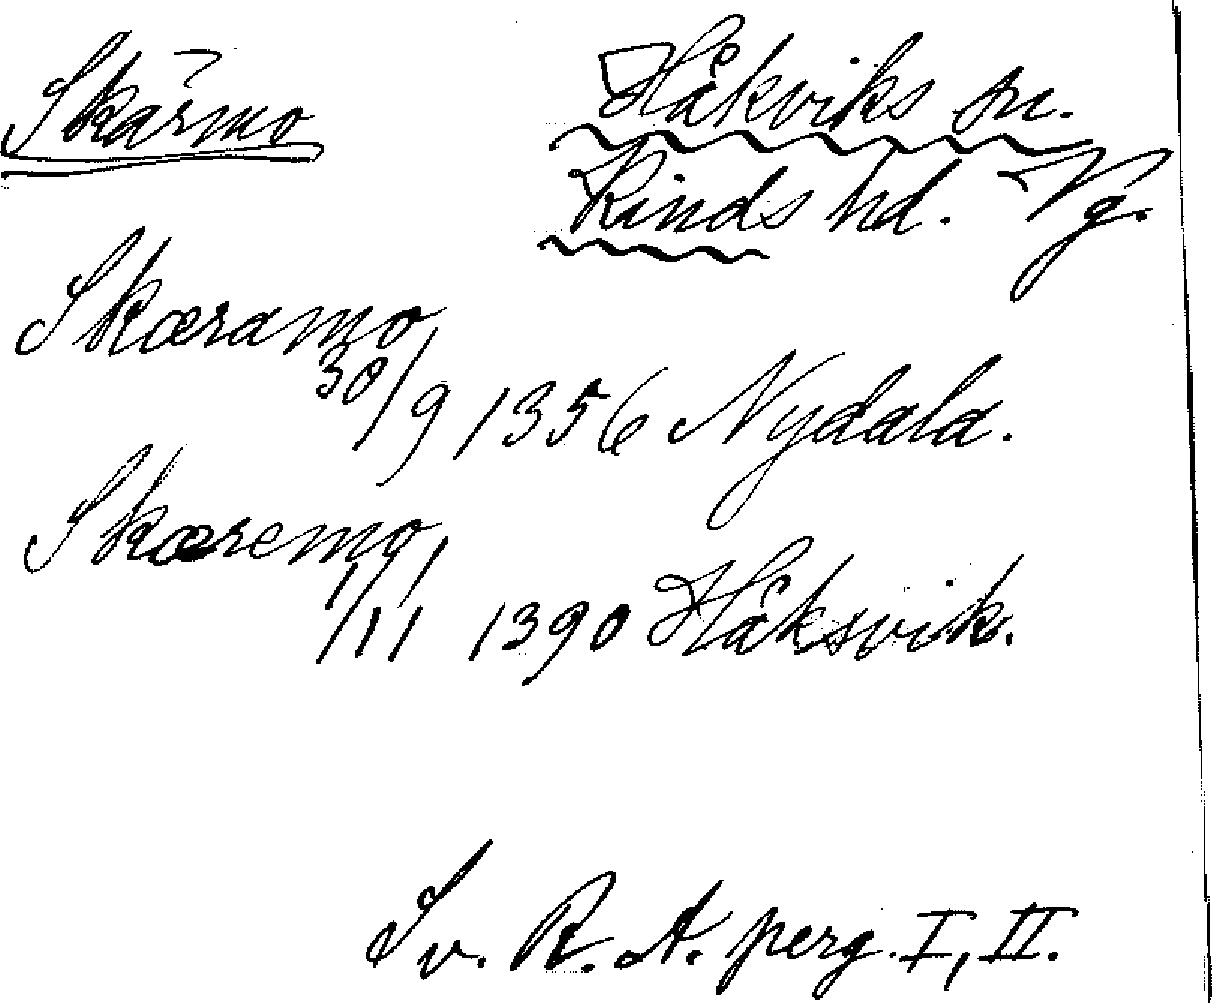 Skärmo
Håkviks sn.
Kinds hd. Vg.
Skæramo,
30/9 1356 Nydala.
Skæremo,
1/11 1390 Håksvik.
Sv. R. A. perg. I, II.